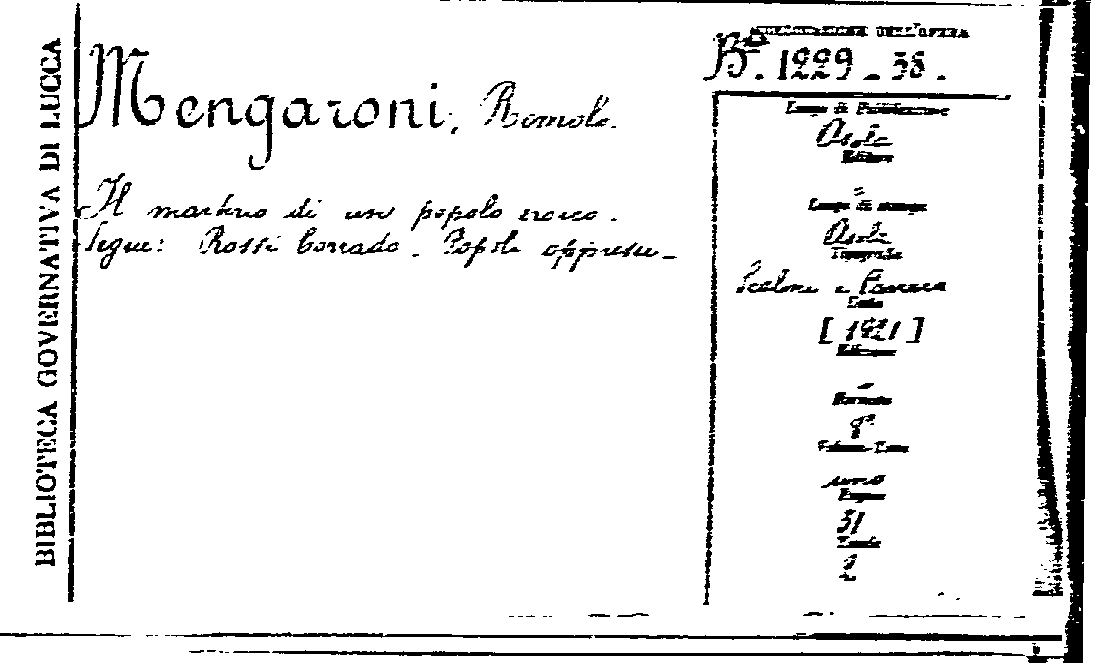 BIBLIOTECA GOVERNATIVA DI LUCCA
Mengaroni, Romolo.
Il martirio di un popolo eroico.
Segue: Rossi Corrado. Popoli oppressi_
COLLOCAZIONE DELL'OPERA
Bª. 1229 - 38.
Luogo di Pubblicazione
Asola
Editore
=
Luogo di stampa
Asola
Tipografia
Scalini e
Data
[1921]
Edizione
-
Formato
8°
Volume
uno
Pagine
31
Tavole
2